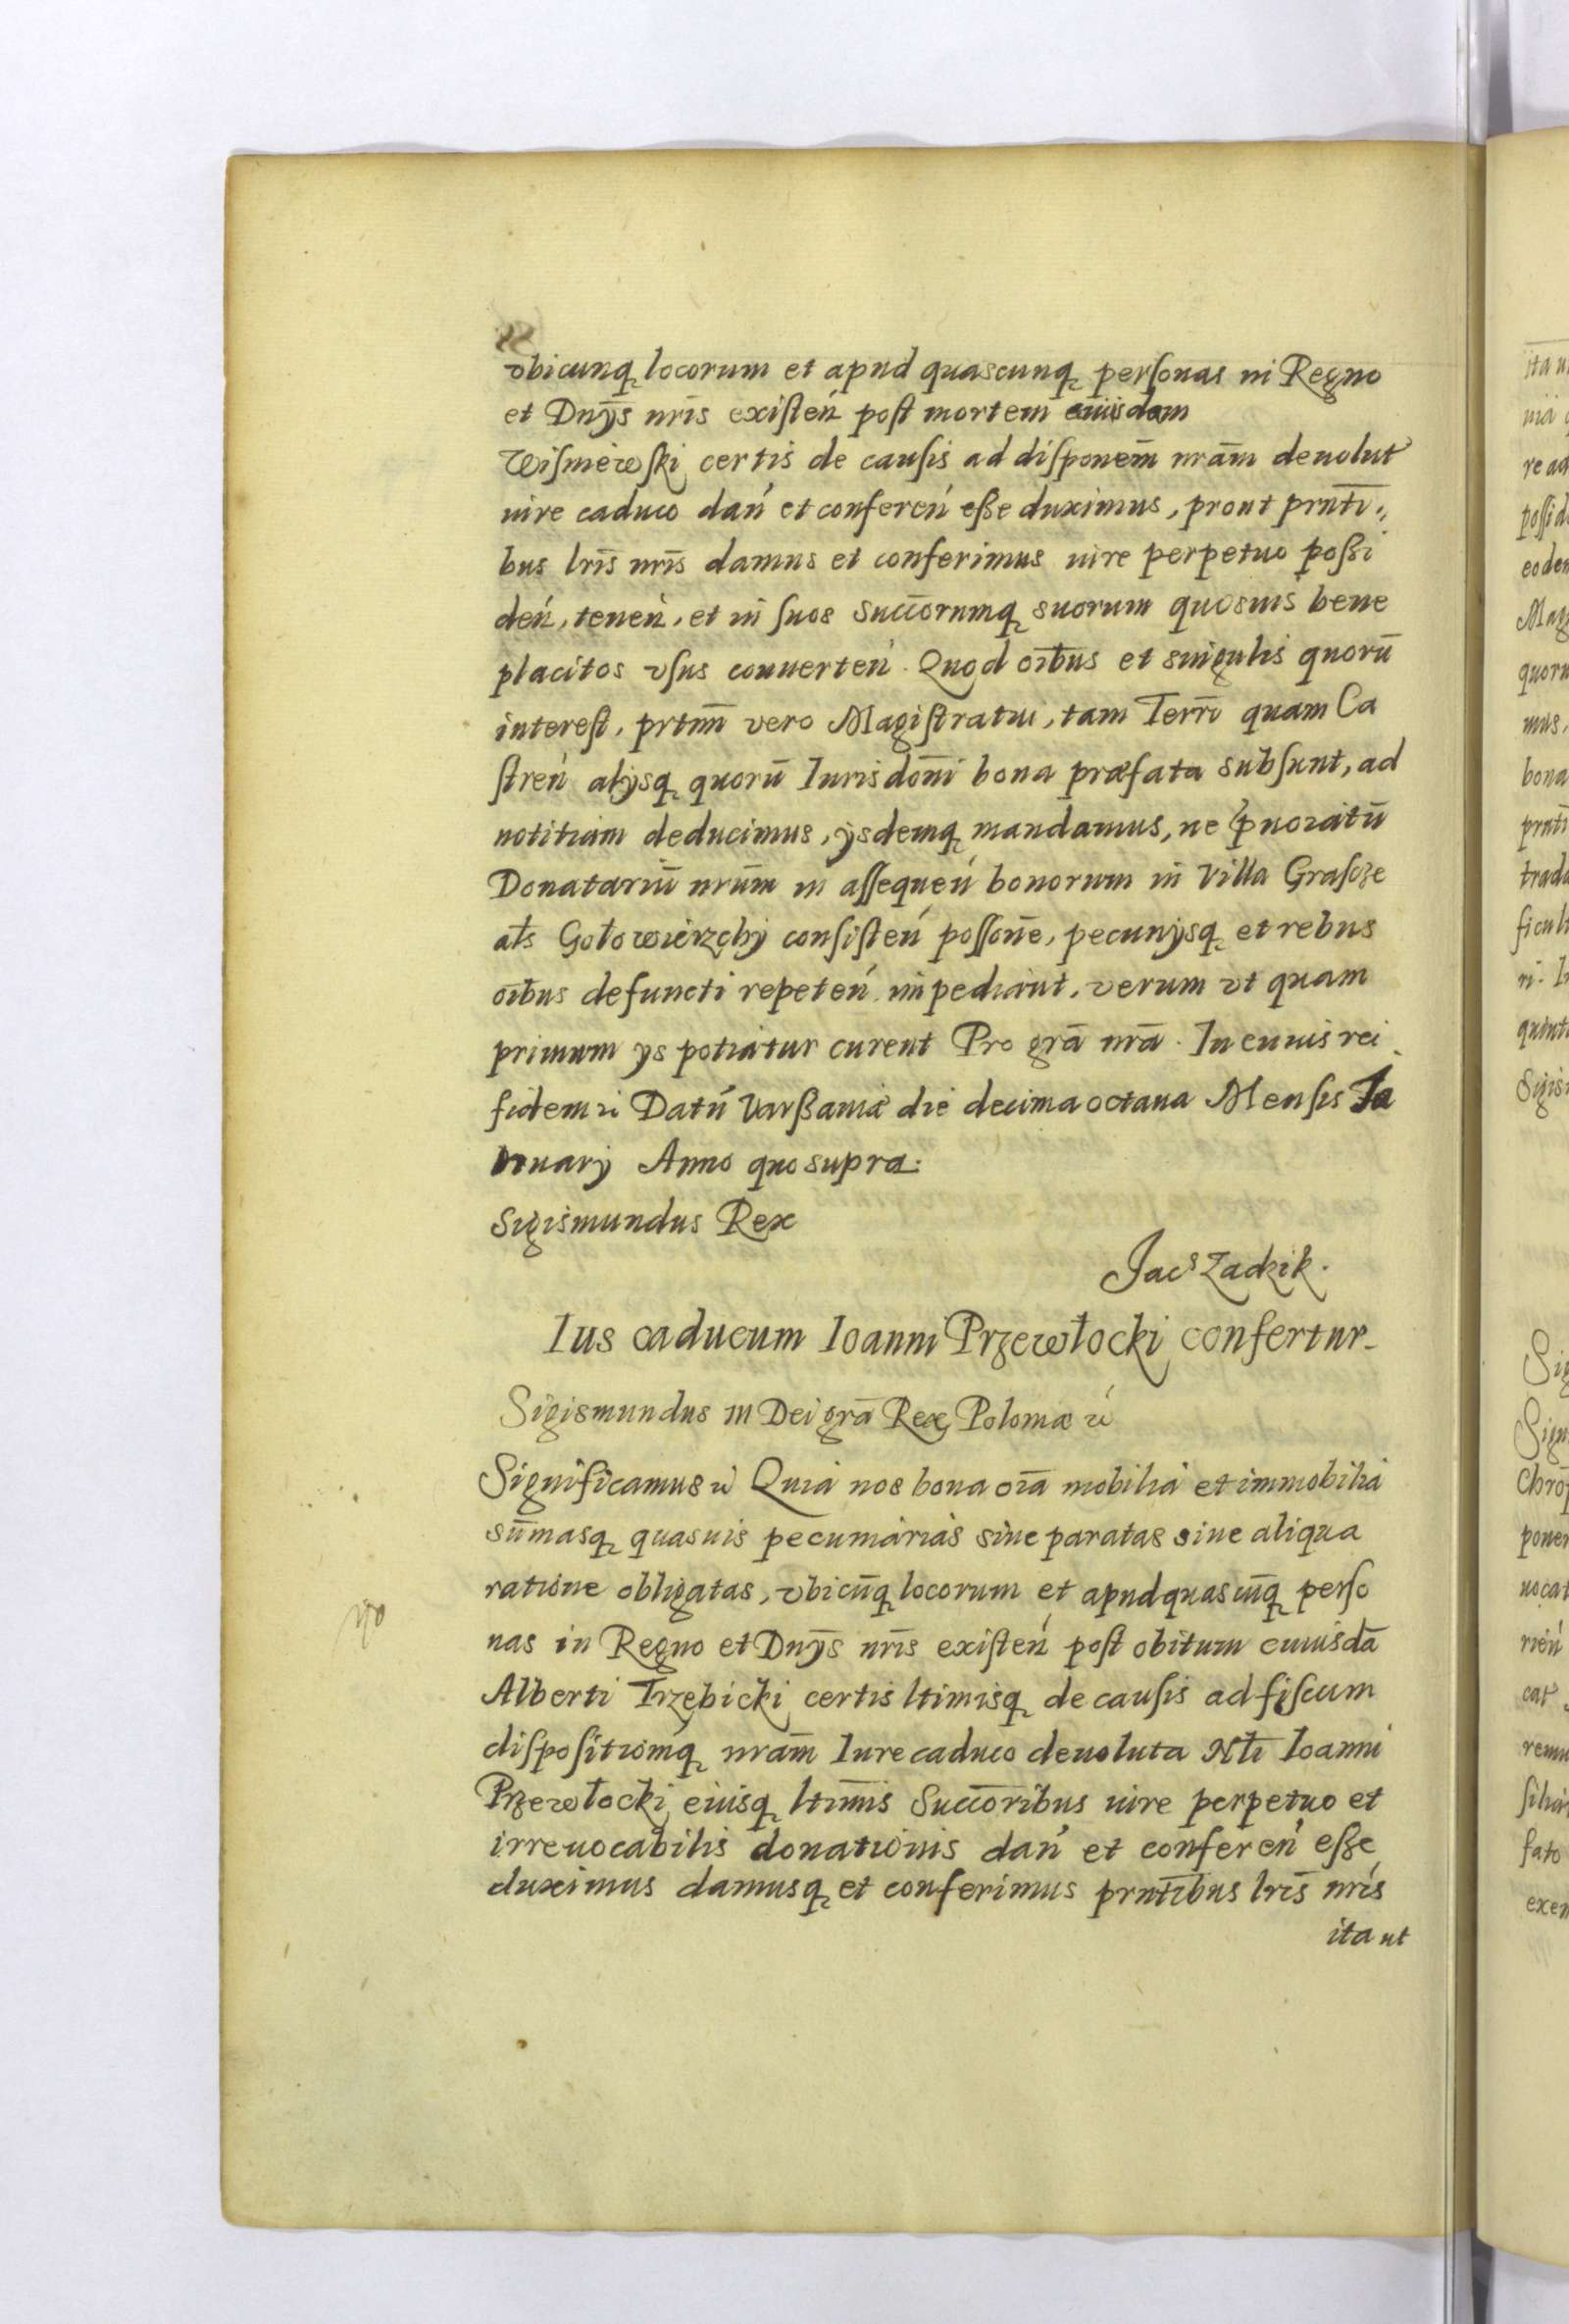 vbicunq locorum et apud quascunq personas in Regno
et Dnÿs nrīs existeń post mortem cuiusdam
Wisniewski certis de causis ad disponem̄ nrām deuolut
iure caduco dań et confereń esse duximus, prout prnti„
bus lrīs nrīs damus et conferimus iure perpetuo possi
deń, teneń, et in suos Succorumq suorum quosuis bene
placitos vsus conuerteń. Quod oībus et singulis quorū
interest, prtim̄ vero Magistratui, tam Terrī quam Ca
streń alÿsq quorū Iurisdonī bona præfata subsunt, ad
notitiam deducimus, ÿsdemq mandamus, ne
Donatariū nrūm in assequeń bonorum in Villa Grascze
als Gołowierzchÿ consisteń possonē, pecunÿsq et rebus
oībus defuncti repeteń impediant, verum vt quam
primum ÿs potiatur curent Pro grā nrā. In cuius rei
fidem ꝛć Datū Varssauiæ die decima octaua Mensis Ia
nuarÿ Anno quo supra.
Sigismundus Rex
Jacs Zadzik.
Ius caducum Ioanni Przewłocki confertur
Sigismundus III Dei grā Rex Poloniæ ꝛć
Significamus ꝛć Quia nos bona oīa mobilia et immobilia
sūmasq quasuis pecuniarias siue paratas siue aliqua
ratione obligatas, vbicūq locorum et apud quascūq perso
nas in Regno et Dnÿs nrīs existeń post obitum cuiusdā
Alberti Trzebicki certis ltimisq de causis ad fiscum
dispositionēq nrām Iure caduco deuoluta Nlī Ioanni
Przewłocki eiusq ltimīs Succoribus iure perpetuo et
irreuocabilis donationis dań et confereń esse
duximus damusq et conferimus prntībus lrīs nrīs
ita ut